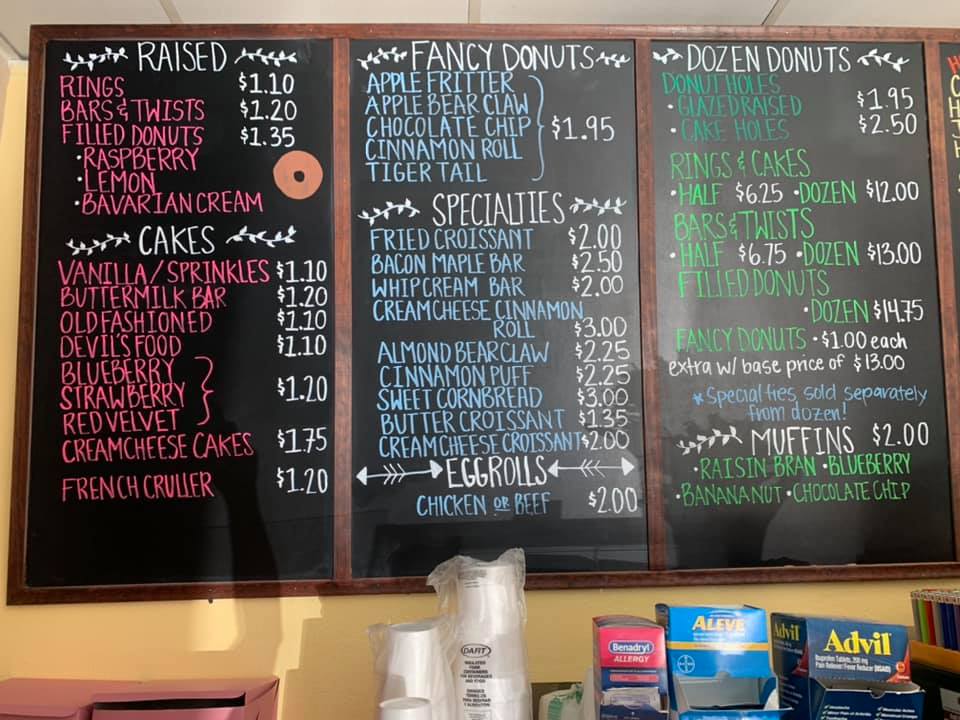 RAISED
RINGS $1.10
BARS & TWISTS $1.20
FILLED DONUTS $1.35
•RASPBERRY
•LEMON
•BAVARIAN CREAM
CAKES
VANILLA/SPRINKLES $1.10
BUTTERMILK BAR $1.20
OLD FASHIONED $1.20
DEVIL'S FOOD $1.10
BLUEBERRY
STRAWBERRY $1.20
RED VELVET
CREAMCHEESE CAKES $1.75
FRENCH CRULLER $1.20
FANCY DONUTS
APPLE FRITTER
APPLE BEAR CLAW
CHOCOLATE CHIP $1.95
CINNAMON ROLL
TIGER TAIL
SPECIALTIES
FRIED CROISSANT $2.00
BACON MAPLE BAR $2.50
WHIP CREAM BAR $2.00
CREAM CHEESE CINNAMON
ROLL $3.00
ALMOND BEAR CLAW $2.25
CINNAMON PUFF $2.25
SWEET CORNBREAD $3.00
BUTTER CROISSANT $1.35
CREAM CHEESE CROISSANT $2.00
EGGROLLS
CHICKEN OR BEEF $2.00
DOZEN DONUTS
DONUT HOLES
• GLAZED RAISED $1.95
• CAKE HOLES $2.50
RINGS & CAKES
•HALF $6.25 •DOZEN $12.00
BARS & TWISTS
• HALF $6.75 •DOZEN $13.00
FILLED DONUTS
•DOZEN $14.75
FANCY DONUTS •$1.00 each
extra w/ base price of $13.00
*Specialties sold separately
from dozen!
MUFFINS $2.00
•RAISIN BRAN •BLUEBERRY
•BANANA NUT •CHOCOLATE CHIP
DART
INSULATED
FOAM
CONTAINERS
FOR BEVERAGES
AND FOOD
Benadryl
ALLERGY
ALEVE
BAYER
Advil
Advil
Ibuprofen Tablets, 200 mg
Pain Reliever/Fever Reducer (NSAID)